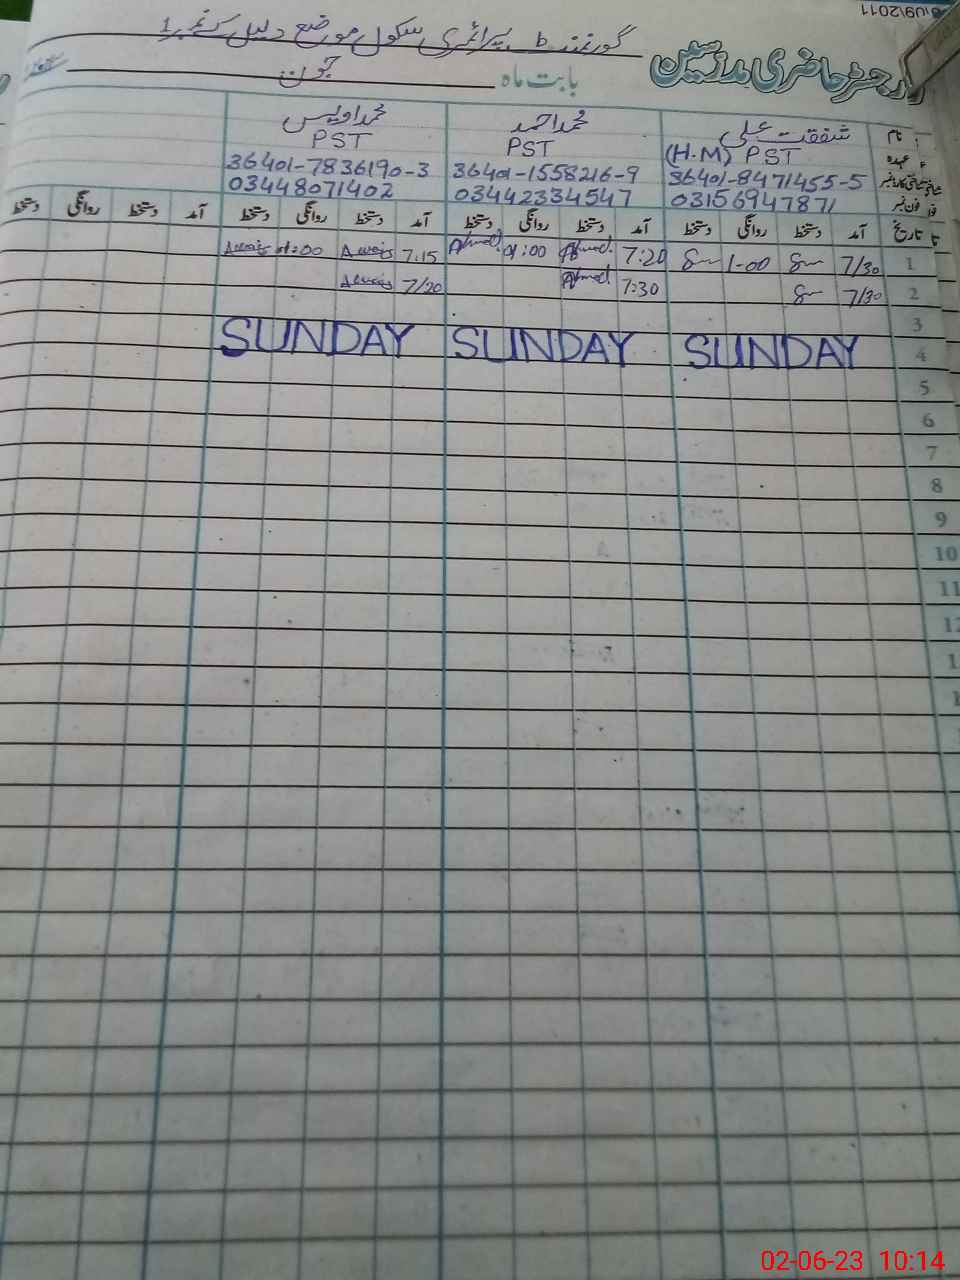 گورنمنٹ پرائمری سکول موضع دلیل کے نمبر 1
رجسٹر حاضری مدرسین
بابت ماہ جون
نام شفقت علی محمد احمد محمد اویس
عہدہ (H.M) PST PST PST
شناختی کارڈ نمبر 36401-8471455-5 36401-1558216-9 36401-7836190-3
فون نمبر 03156947871 03442334547 03448071402
تاریخ آمد دستخط روانگی دستخط آمد دستخط روانگی دستخط آمد دستخط روانگی دستخط آمد دستخط روانگی دستخط
1 7/30 1-00 7:20 Ahmed 01:00 Ahmed 7:15 Awais 01:00 Awais
2 7/30 7:30 Ahmed 7/20 Awais
3
4 SUNDAY SUNDAY SUNDAY
5
6
7
8
9
10
11
12
02-06-23 10:14